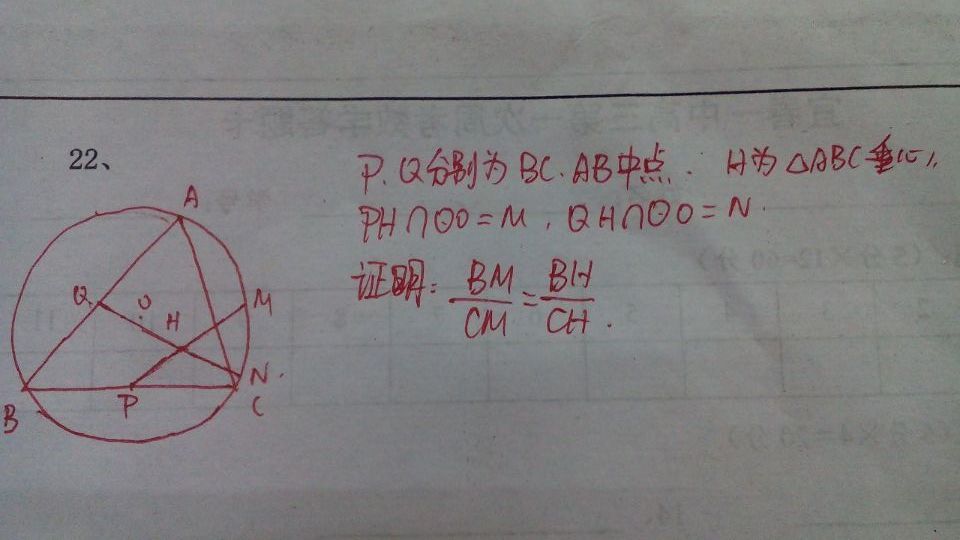 22、
P、Q分别为BC、AB中点. H为△ABC垂心,
PH∩⊙O=M, QH∩⊙O=N.
证明: BM/CM=BH/CH.
A
Q O M
H
N.
B P C